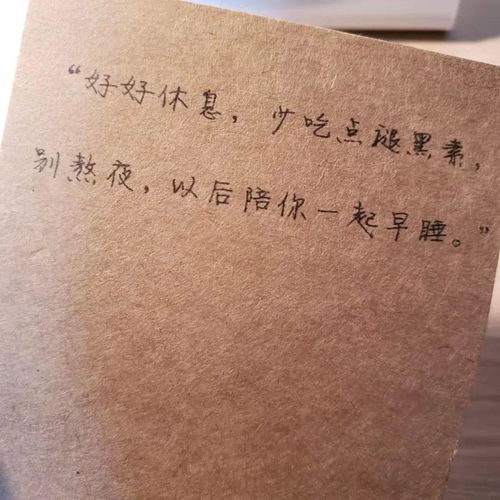 “好好休息，少吃点褪黑素，
别熬夜，以后陪你一起早睡。”